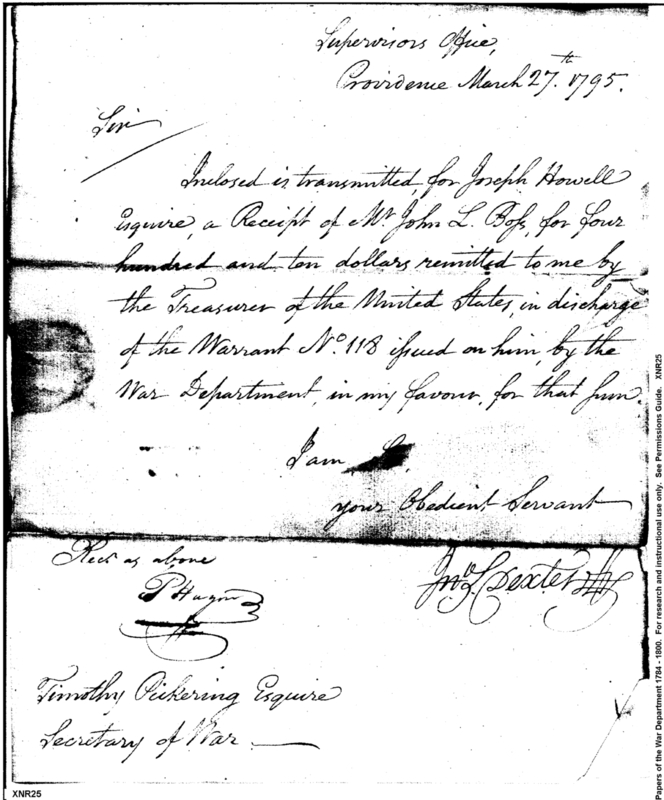 Supervisors Office,
Providence March 27.th 1795.
Sir
Inclosed is transmitted, for Joseph Howell
Esquire, a Receipt of Mr. John L. Boss, for four
hundred and ten dollars remitted to me by
the Treasurer of the United States, in discharge
of the Warrant No. 118 issued on him, by the
War Department, in my favour, for that sum.
I am, Sir,
your Obedient Servant
Jno. S. Dexter
Recd. as above
P Hagner
Timothy Pickering Esquire
Secretary of War
XNR25
Papers of the War Department 1784 - 1800. For research and instructional use only. See Permissions Guide. XNR25